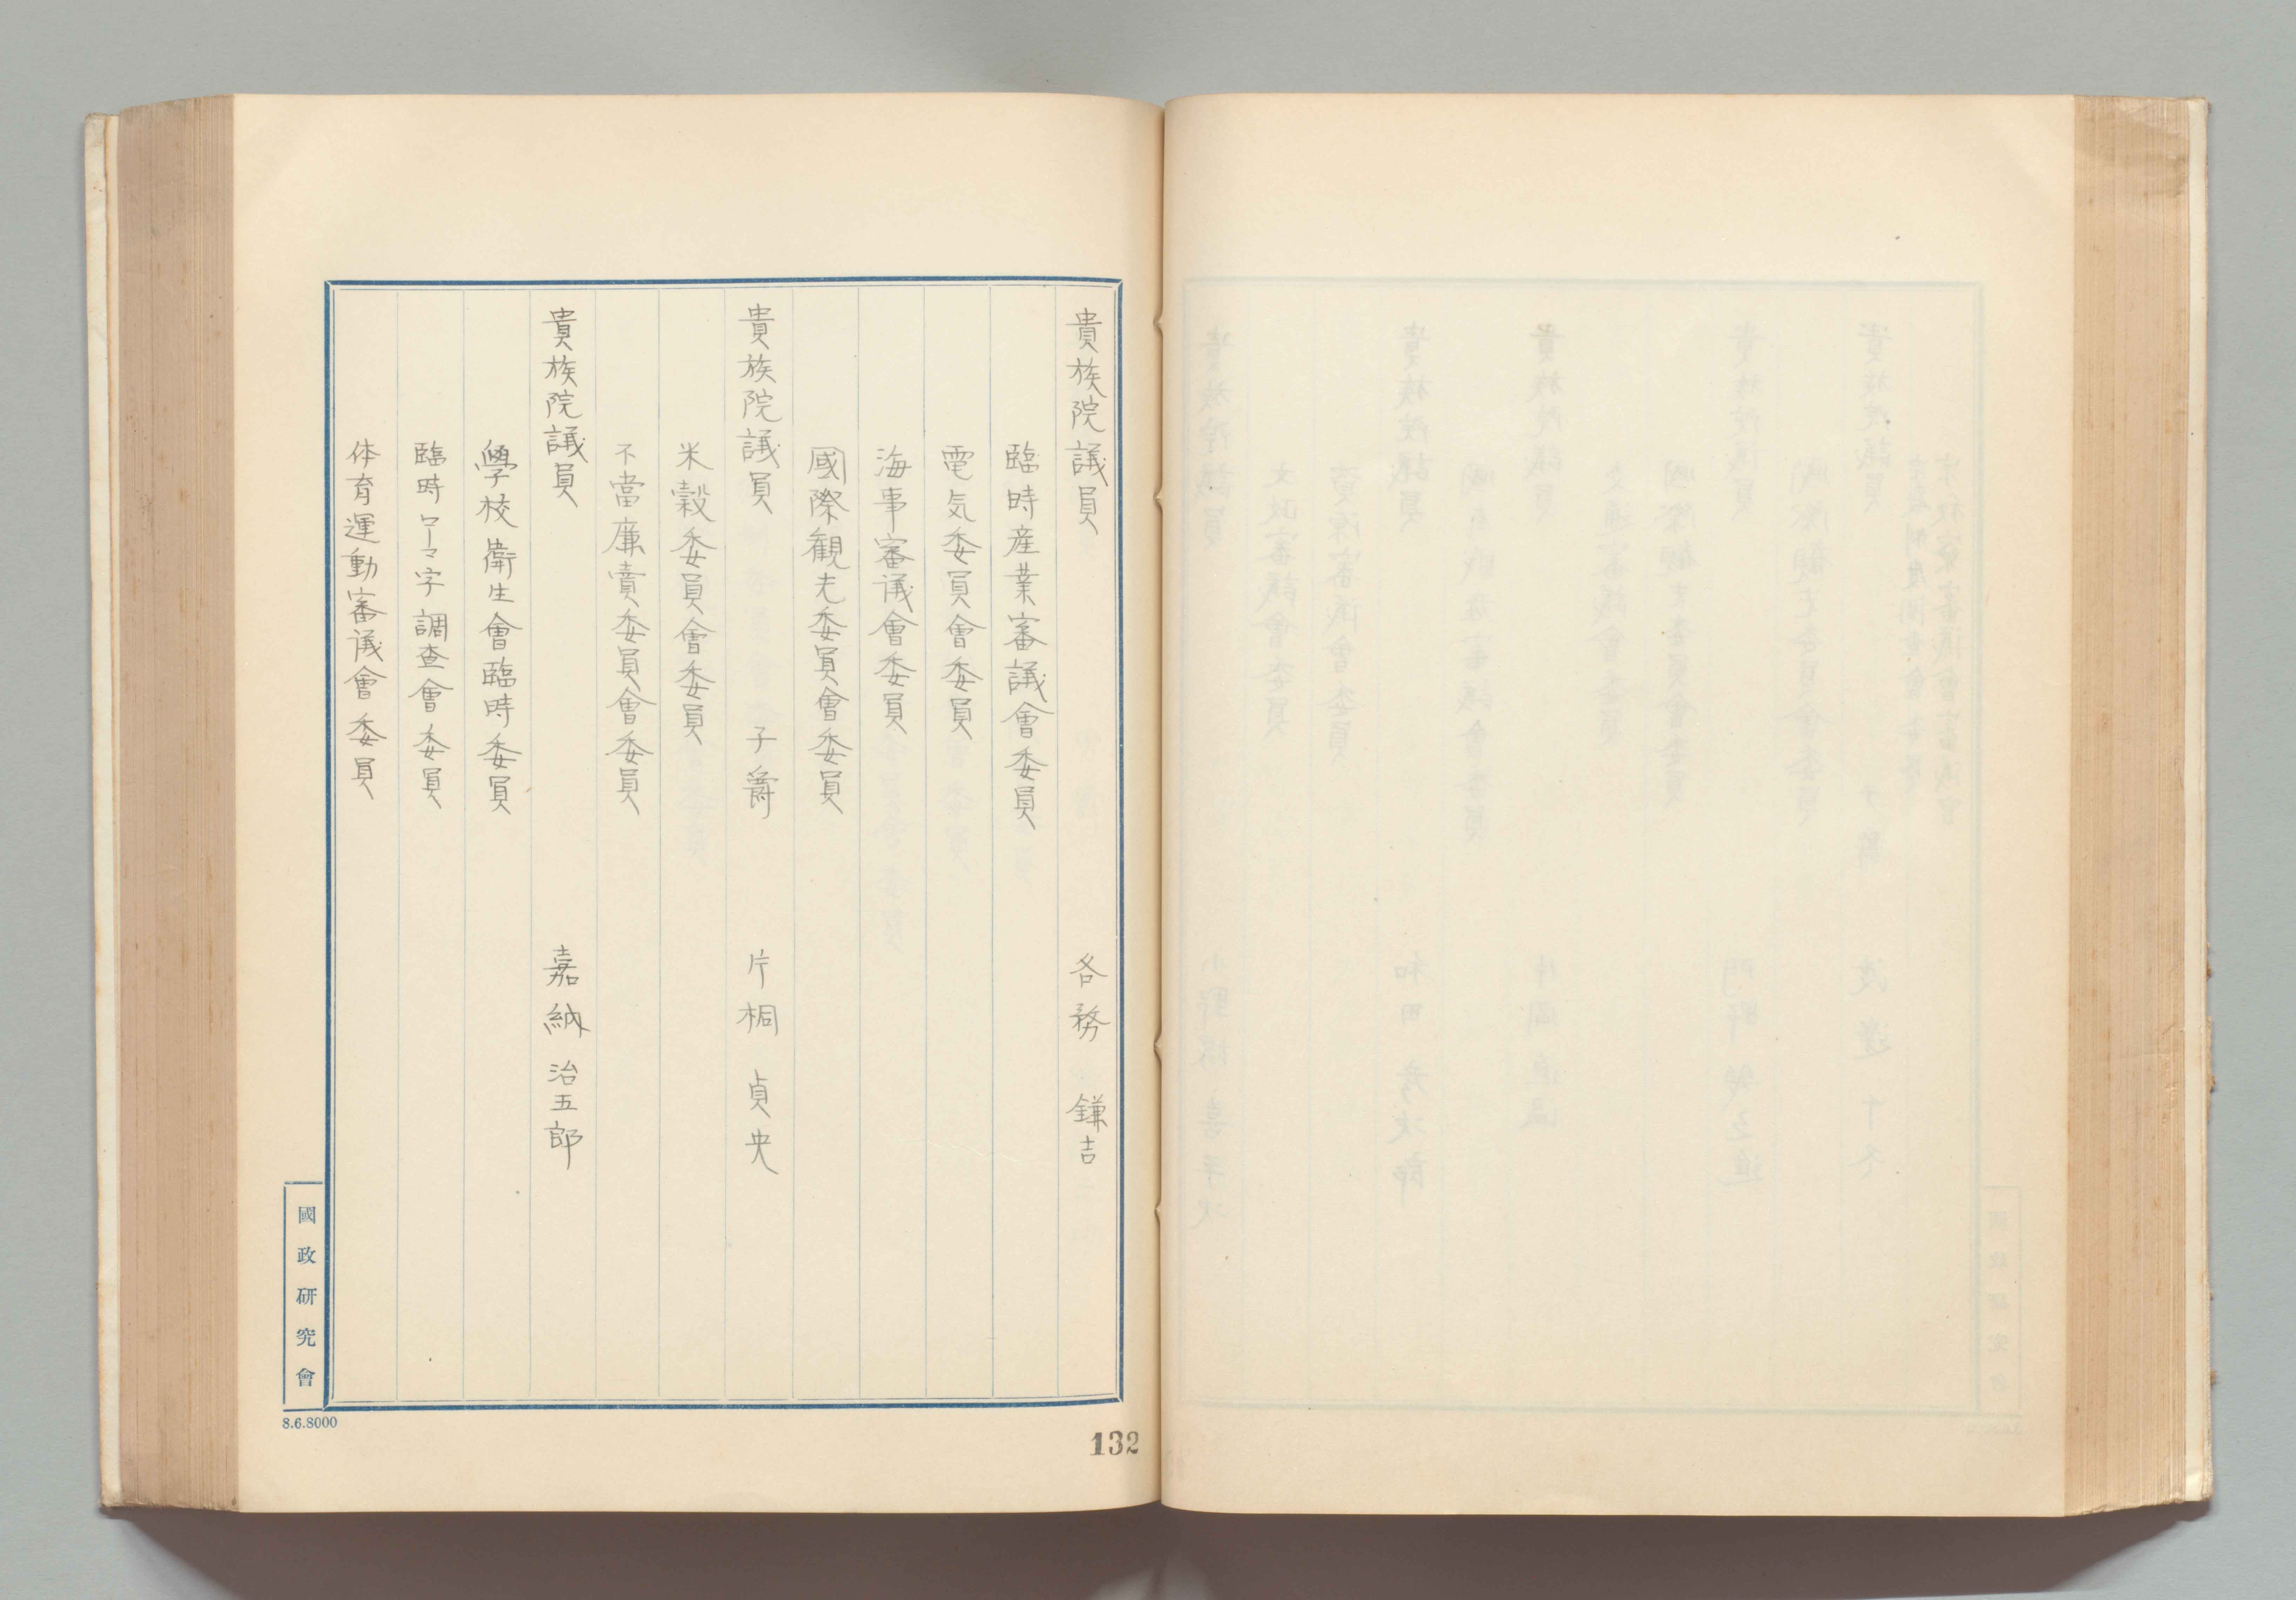 貴族院議員 各務鎌吉
臨時産業審議會委員
電気委員會委員
海事審議會委員
國際観光委員會委員
貴族院議員 子爵 片桐貞央
米穀委員會委員
不當廉賣委員會委員
貴族院議員 嘉納治五郎
學校衛生會臨時委員
臨時ローマ字調査會委員
体育運動審議會委員
國政研究會
8.6.8000
132